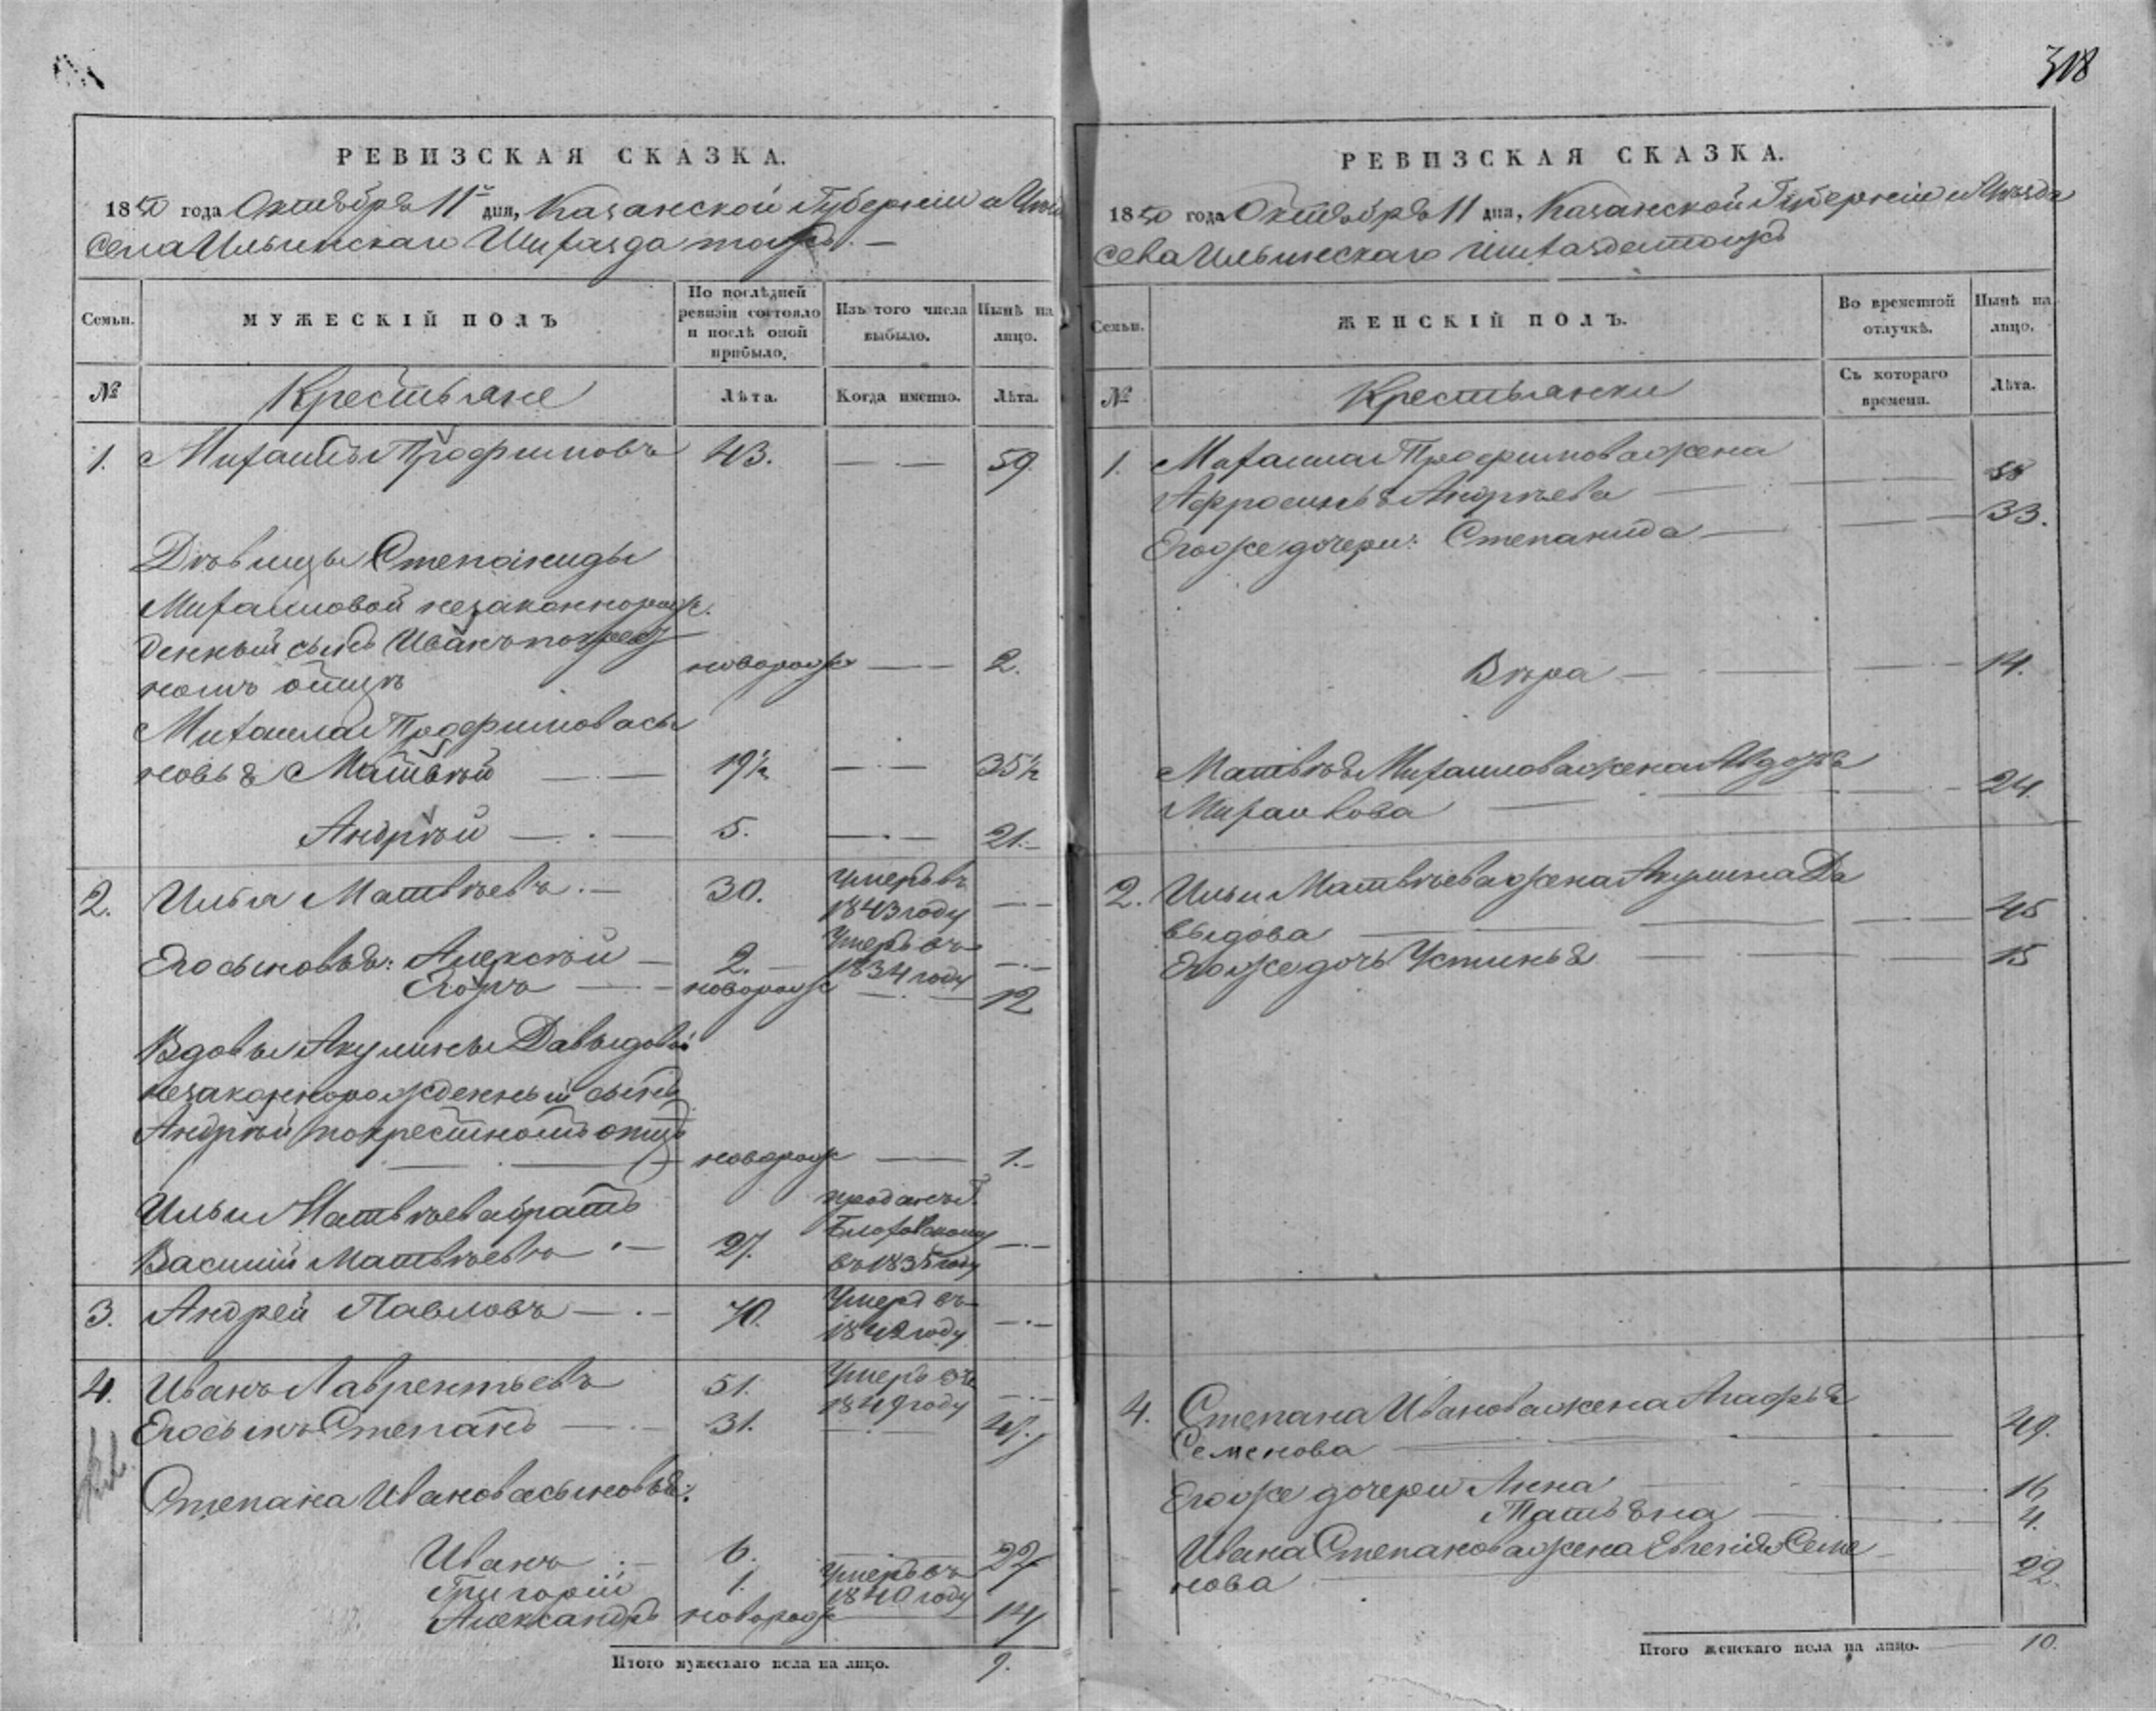 318
РЕВИЗСКАЯ СКАЗКА.
1850 года Октября 11 дня, Казанской Губерніи и Уѣзда
села Ильинскаго Шигаздатожъ. —
Семьи.
МУЖЕСКІЙ ПОЛЪ
По послѣдней ревизіи состояло и послѣ оной прибыло.
Изъ того числа выбыло.
Нынѣ на лицо.
№
Крестьяне
Лѣта.
Когда именно.
Лѣта.
1. Михаилъ Трофимовъ 43. — · — 59
Дѣвицы Степаниды
Михаиловой незаконнорож.
денный сынъ Иванъ по крест
номъ отцѣ новорож — — 2.
Михаила Трофимова сы
новья Матвѣй — · — 19½ — · — 35½
Андрѣй — · — 5. — · — 21. —
2. Илья Матвѣевъ. — 30. Умеръ въ 1843 году — · —
Его сыновья: Алексѣй — 2. — Умеръ въ 1834 году — · —
Егоръ — · — новорож — · — 12
Вдовы Акулины Давыдовой
незаконнорожденный сынъ
Андрѣй по крестномъ отцѣ
— · — новорож — — 1. —
Ильи Матвѣева братъ
Василій Матвѣевъ · — 27. проданъ Г. въ 1835 году — · —
3. Андрей Павловъ — · — 70. Умеръ въ 1842 году — · —
4. Иванъ Лаврентьевъ 51. Умеръ въ 1849 году — · —
Его сынъ Степанъ — · — 31. — · — 47.
Степана Иванова сыновья:
Иванъ · — 6. — 22
Григорій 1. Умеръ въ 1840 году
Александръ новорож — 14
Итого мужескаго пола на лицо. 9.
РЕВИЗСКАЯ СКАЗКА.
1850 года Октября 11 дня, Казанской Губерніи и Уѣзда
села Ильинскаго Шигаздатожъ
Семьи.
ЖЕНСКІЙ ПОЛЪ.
Во временной отлучкѣ.
Нынѣ на лицо.
№
Крестьянки
Съ котораго времени.
Лѣта.
1. Михаила Трофимова жена
Афросинья Андрѣева — · — 58
Его же дочери: Степанида — · — 33.
Вѣра — · — 14.
Матвѣя Михаилова жена Авдотья
Михайлова — · — 24.
2. Ильи Матвѣева жена Акулина Да
выдова — · — 45
Его же дочь Устинья — · — 15
4. Степана Иванова жена Агафья
Семенова — · — 49.
Его же дочери Анна — · — 16
Татьяна — · — 4.
Ивана Степанова жена Евгенія Семе
нова — 22.
Итого женскаго пола на лицо. 10.